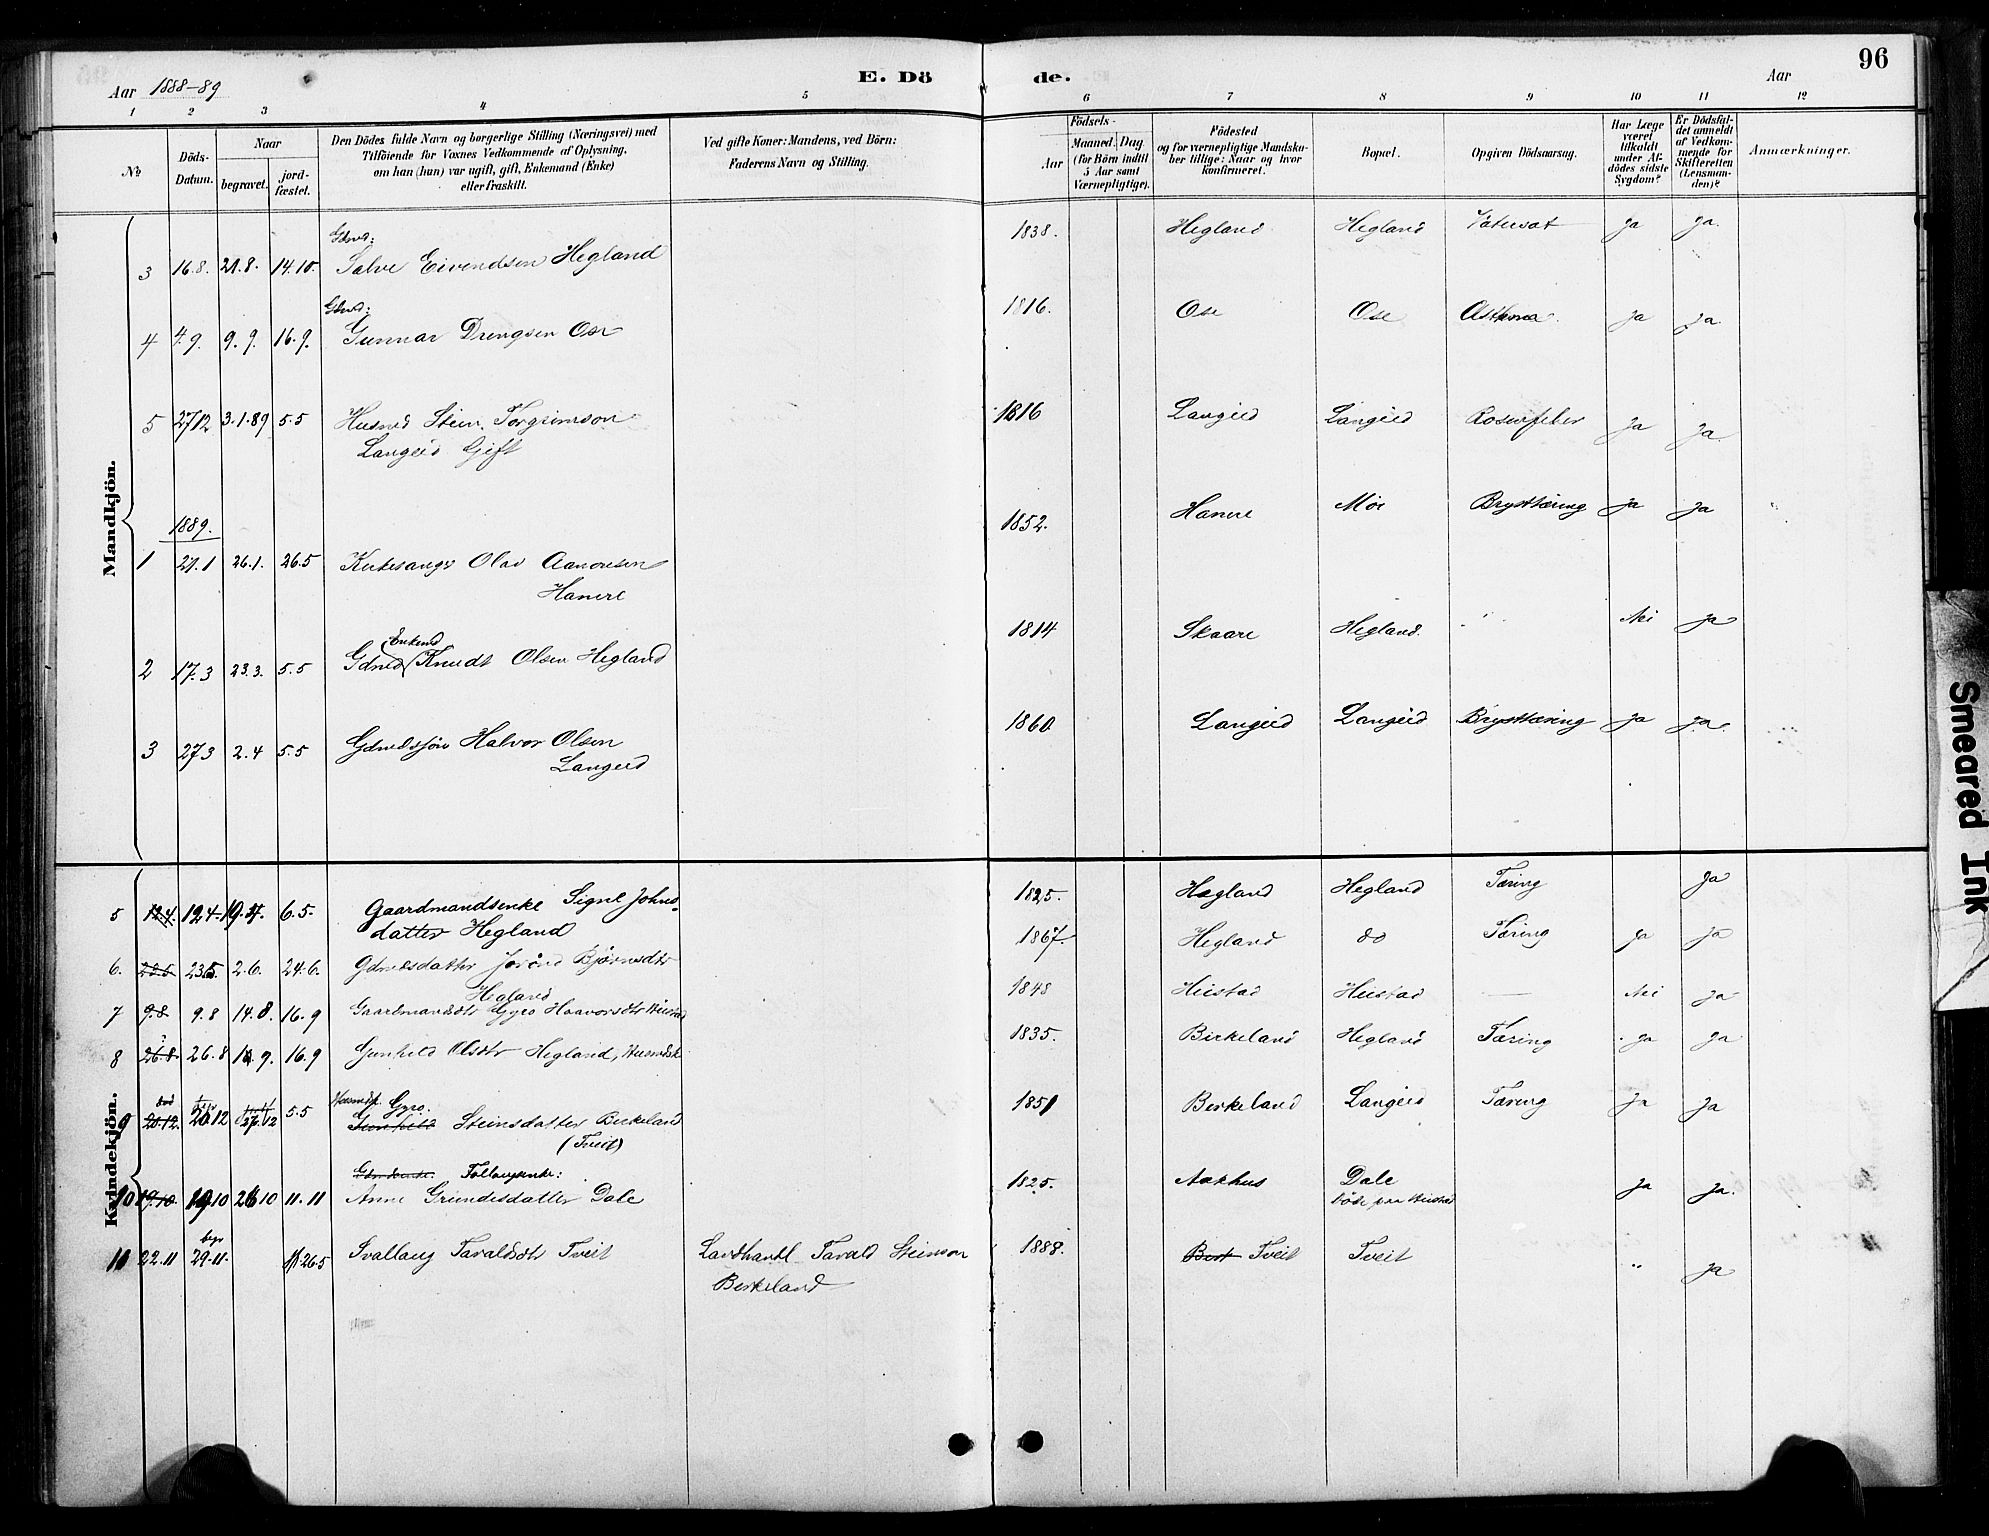 96
Aar 1888-89
E. Dö
de.
Aar
1 2 3 4 5 6 7 8 9 10 11 12
No
Döds-Datum.
Naar
begravet.
jord-fæstet.
Den Dödes fulde Navn og borgerlige Stilling (Næringsvei) med
Tilföiende for Voxnes Vedkommende af Oplysning,
om han (hun) var ugift, gift, Enkemand (Enke)
eller fraskilt.
Ved gifte Koner: Mandens, ved Börn:
Faderens Navn og Stilling.
Födsels-
Aar
Maaned. Dag.
(for Börn indtil
5 Aar samt
Værnepligtige).
Födested
og for værnepligtige Mandska-
ber tillige: Naar og hvor
konfirmeret.
Bopæl.
Opgiven Dödsaarsag.
Har Læge
været
tilkaldt
under Af-
dödes sidste
Sygdom?
Er Dödsfal-
det anmeldt
af Vedkom-
mende for
Skifteretten
(Lensman-
den)?
Anmærkninger.
Mandkjön.
Gdmd:
3 16.8. 21.8. 14.10. Salve Eivendsen Hegland 1838. Hegland Hegland Vatersot ja ja.
Gdmd:
4 4.9. 9.9. 16.9. Gunnar Drengsen Ose 1816. Ose Ose Asthma. ja ja
5 2712 3.1.89 5.5 Husmd Stein Torgrimson 1816 Langeid Langeid Rosenfeber ja ja
Langeid Gift
1889.
1 21.1 26.1. 26.5 Kirkesangr Olav Aanonsen 1852. Hanere Moe Brysttæring ja ja
Hanere
Enkemd
2 17.3 23.3. 5.5 Gdmd Knudt Olsen Hegland 1814 Skaare Hegland. Nei ja
3 273 2.4 5.5 Gdmdssön Halvor Olsen 1860 Langeid Langeid Brysttæring ja ja.
Langeid
Kvindekjön.
5 12.4. 124- 19.4. 6.5. Gaardmandsenke Signe Johns- 1825. Hægland Hegland Tæring ja
datter Hegland
6. 23.5 235 2.6. 24.6. Gdmdsdatter Jorönd Björnsdtr 1867. Hegland do Tæring ja ja
Hegland
7 9.8 9.8 14.8. 16.9 Gaardmandsdtr Gyro Haavorsdtr 1848 Heistad Heistad Nei ja
8 26.8. 26.8 1.9. 16.9 Gunhild Olsdtr Hegland, 1835. Birkeland Hegland Tæring ja ja
Gyro.
9 20.12. 2012 27.12 5.5 Gunhild Steinsdatter Birkeland 1851 Birkeland Langeid Tæring ja ja
(Tveit)
10 19.10 1910 2610 11.11 Anne Grundesdatter Dale 1825. Aakhus Dale ja ja.
döde paa Heistad
byr
11 22.11 29.11. 26.5 Svallaug Taraldsdtr Tveit Landhandl Tarald Steinson 1888. Tveit Tveit " ja
Birkeland
Smeared Ink